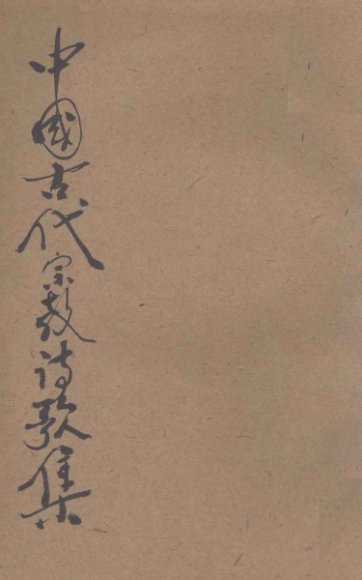 中國古代宗教诗歌集